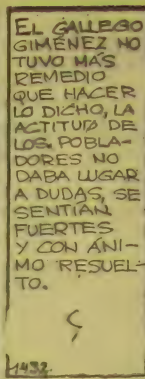 EL GALLEGO
GIMÉNEZ NO
TUVO MÁS
REMEDIO
QUE HACER
LO DICHO, LA
ACTITUD DE
LOS POBLA-
DORES NO
DABA LUGAR
A DUDAS, SE
SENTÍAN
FUERTES
Y CON ÁNI-
MO RESUEL-
TO.
1432